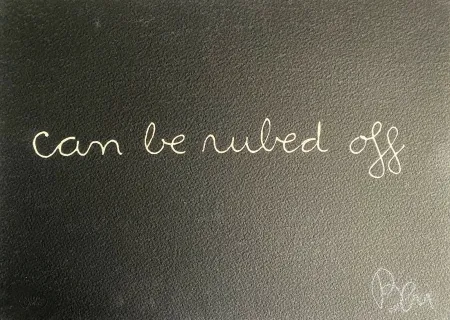 can be rubed off